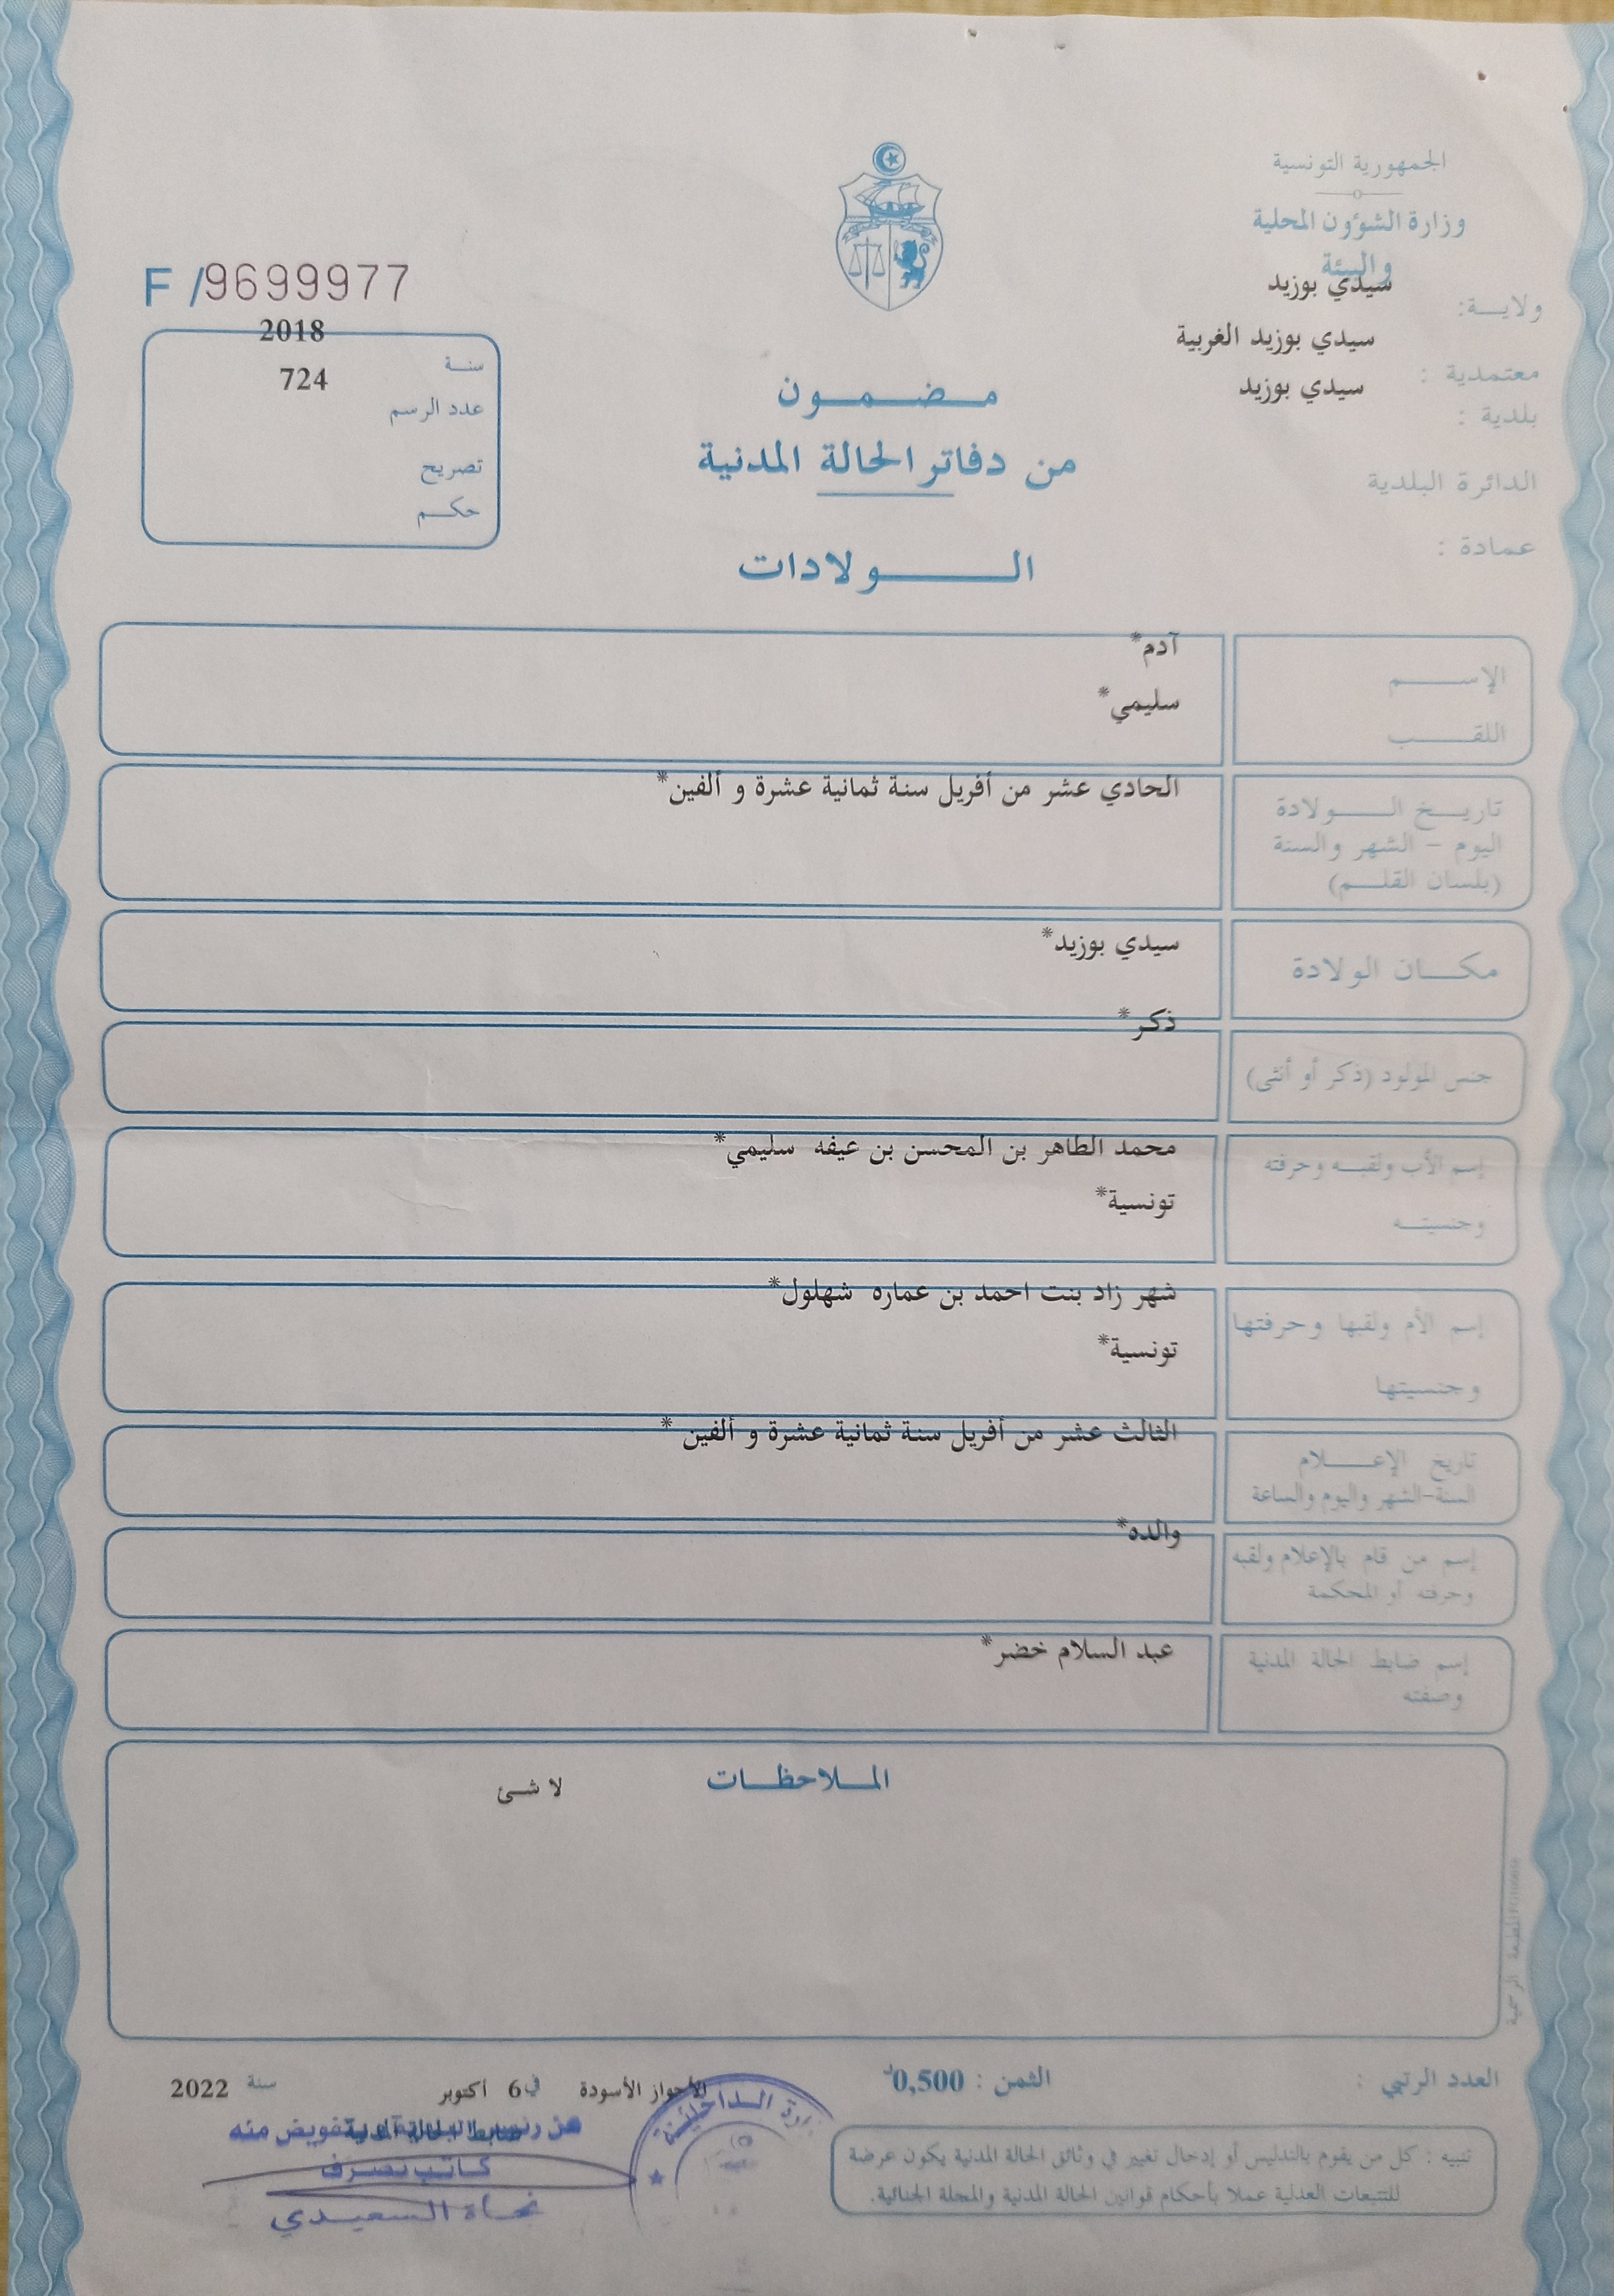 الجمهورية التونسية
وزارة الشؤون المحلية
والبيئة
ولايــة: سيدي بوزيد
معتمدية : سيدي بوزيد الغربية
بلدية : سيدي بوزيد
الدائرة البلدية
عمادة :
F /9699977
سنـة 2018
عدد الرسم 724
تصريح
حكــم
مـضـمـون
من دفاتر الحالة المدنية
الــولادات
الإســـم آدم*
اللقــب سليمي*
تاريـخ الـــولادة الحادي عشر من أفريل سنة ثمانية عشرة و ألفين*
اليوم – الشهر والسنة
(بلسان القلــم)
مكــان الولادة سيدي بوزيد*
جنس المولود (ذكر أو أنثى) ذكر*
إسم الأب ولقبـه وحرفته محمد الطاهر بن المحسن بن عيفه سليمي*
وجنسيتــه تونسية*
إسم الأم ولقبها وحرفتها شهر زاد بنت احمد بن عماره شهلول*
وجنسيتها تونسية*
تاريخ الإعــلام الثالث عشر من أفريل سنة ثمانية عشرة و ألفين *
السنة-الشهر واليوم والساعة
إسم من قام بالإعلام ولقبه والده*
وحرفته أو المحكمة
إسم ضابط الحالة المدنية عبد السلام خضر*
وصفته
المـلاحظـات
لا شئ
المطبعة الرسمية
العدد الرتبي :
الثمن : 0,500د
الأحواز الأسودة في 6 أكتوبر سنة 2022
ضابط الحالة المدنية
عن رئيس البلدية وبتفويض منه
كاتب تصرف
نجاة السعيدي
وزارة الداخلية
تنبيه : كل من يقوم بالتدليس أو إدخال تغيير في وثائق الحالة المدنية يكون عرضة
للتتبعات العدلية عملا بأحكام قوانين الحالة المدنية والمجلة الجنائية.